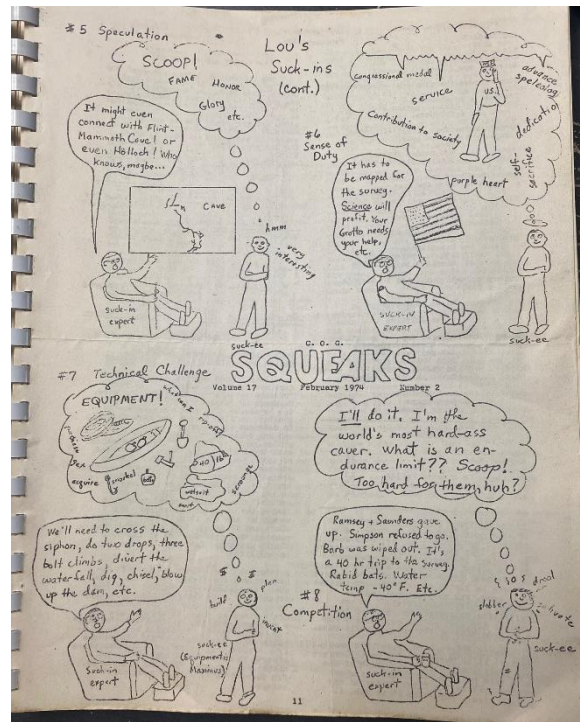 #5 Speculation
SCOOP!
FAME HONOR
Glory
etc.
It might even
connect with Flint-
Mammoth Cave! or
even Hölloch! Who
knows, maybe...
CAVE
hmm
very
interesting
suck-in
expert
suck-ee
Lou's
Suck-ins
(cont.)
#6
Sense of
Duty
congressional medal
service
Contribution to society
purple heart
U.S.
advance
speleology
dedication
self-
sacrifice
It has to
be mapped for
the survey.
Science will
profit. Your
Grotto needs
your help,
etc.
SUCK-IN
EXPERT
suck-ee
C. O. G.
SQUEAKS
Volume 17 February 1974 Number 2
#7 Technical Challenge
EQUIPMENT!
acquire
snorkel
wetsuit
scrounge
We'll need to cross the
siphon, do two drops, three
bolt climbs, divert the
waterfall, dig, chisel, blow
up the dam, etc.
$ $
build
plan
invent
Suck-in
expert
suck-ee
(Equipmentus
Maximus)
I'll do it. I'm the
world's most hard-ass
caver. What is an en-
durance limit?? Scoop!
Too hard for them, huh?
Ramsey + Saunders gave
up. Simpson refused to go.
Barb was wiped out. It's
a 40 hr trip to the survey.
Rabid bats. Water
temp -40°F. Etc.
#8
Competition
drool
slobber
salivate
suck-in
expert
suck-ee
11